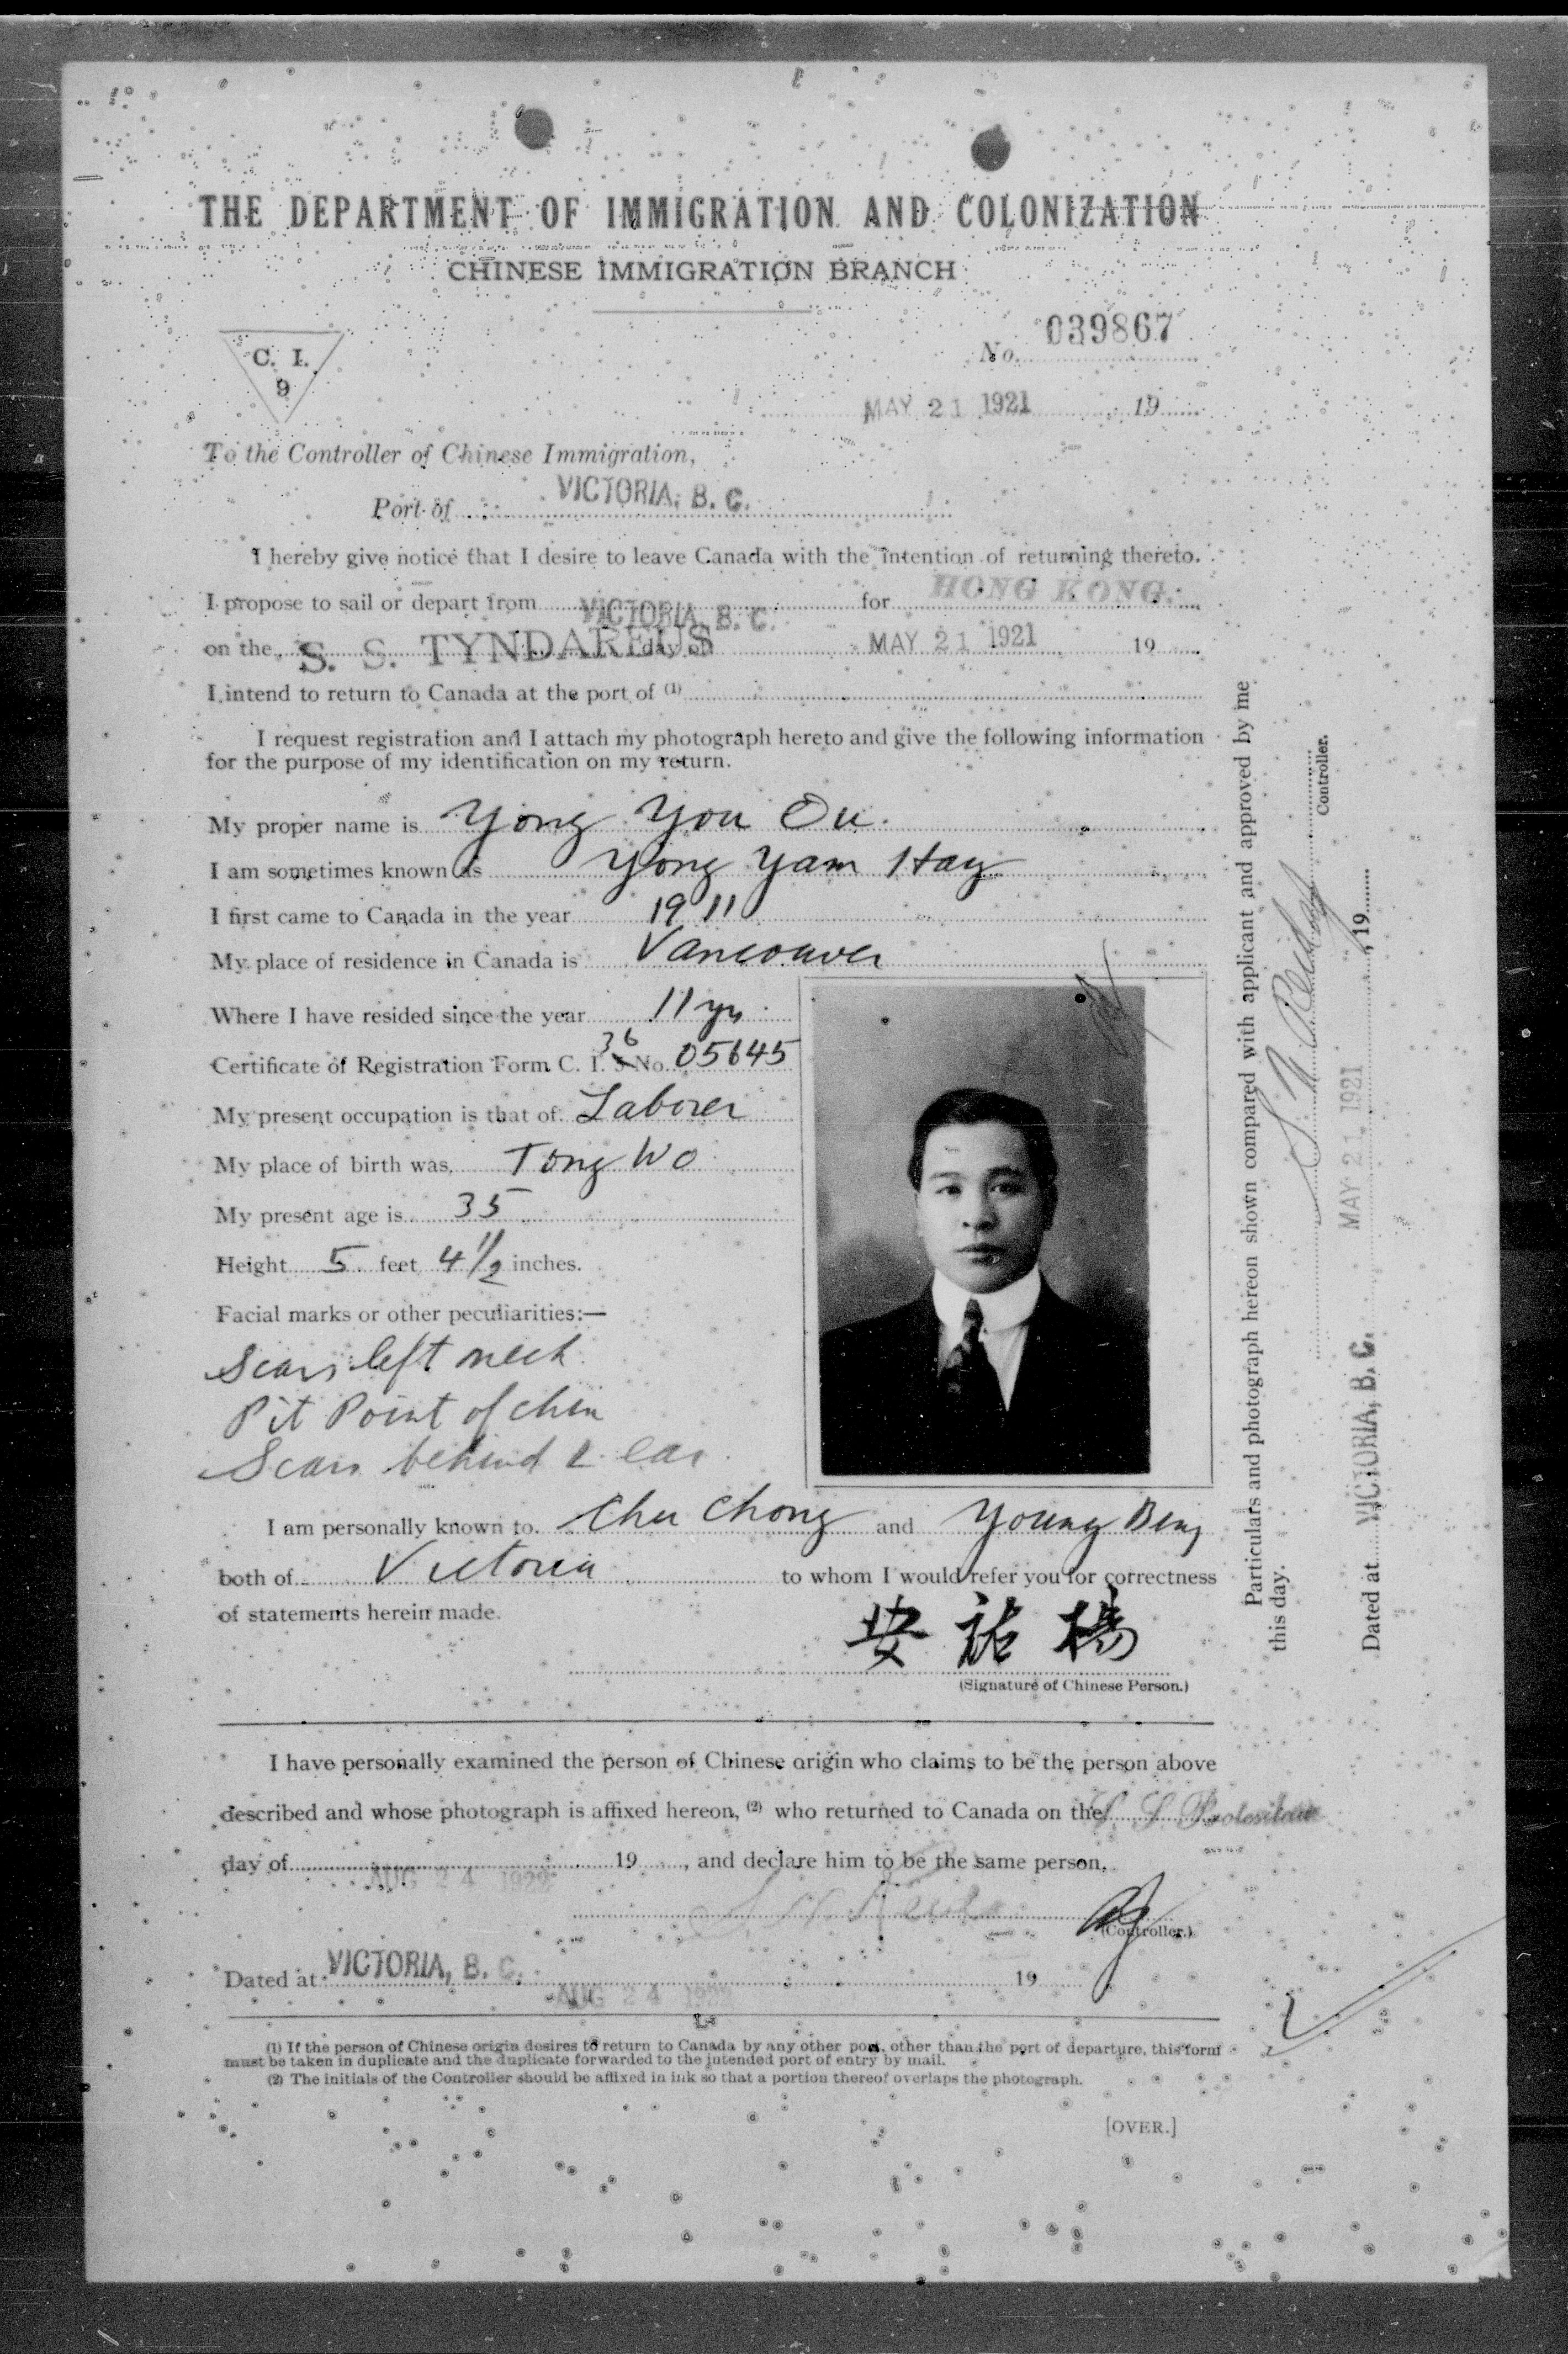 THE DEPARTMENT OF IMMIGRATION AND COLONIZATION
CHINESE IMMIGRATION BRANCH
C. I.
9
No. 039867
MAY 21 1921 19
To the Controller of Chinese Immigration,
Port of VICTORIA, B. C.
I hereby give notice that I desire to leave Canada with the intention of returning thereto.
I propose to sail or depart from VICTORIA, B. C. for HONG KONG.
on the S. S. TYNDAREUS day of MAY 21 1921 19
I intend to return to Canada at the port of (1)
I request registration and I attach my photograph hereto and give the following information
for the purpose of my identification on my return.
My proper name is Yong You On.
I am sometimes known as Yong Yam Hay
I first came to Canada in the year 1911
My place of residence in Canada is Vancouver
Where I have resided since the year 11 yrs
Certificate of Registration Form C. I. 5 36 No. 05645
My present occupation is that of Laborer
My place of birth was Tong Wo
My present age is 35
Height 5 feet 4 1/2 inches.
Facial marks or other peculiarities:—
Scars left neck
Pit Point of chin
Scars behind L ear
I am personally known to Chu Chong and Young Bing
both of Victoria to whom I would refer you for correctness
of statements herein made.
安祐楊
(Signature of Chinese Person.)
I have personally examined the person of Chinese origin who claims to be the person above
described and whose photograph is affixed hereon, (2) who returned to Canada on the S. S. Protesilaus
day of AUG 24 1922 19 , and declare him to be the same person.
(Controller.)
Dated at VICTORIA, B. C. AUG 24 1922 19
(1) If the person of Chinese origin desires to return to Canada by any other port, other than the port of departure, this form
must be taken in duplicate and the duplicate forwarded to the intended port of entry by mail.
(2) The initials of the Controller should be affixed in ink so that a portion thereof overlaps the photograph.
[OVER.]
Particulars and photograph hereon shown compared with applicant and approved by me
this day.
Controller.
Dated at VICTORIA, B. C. MAY 21 1921 , 19